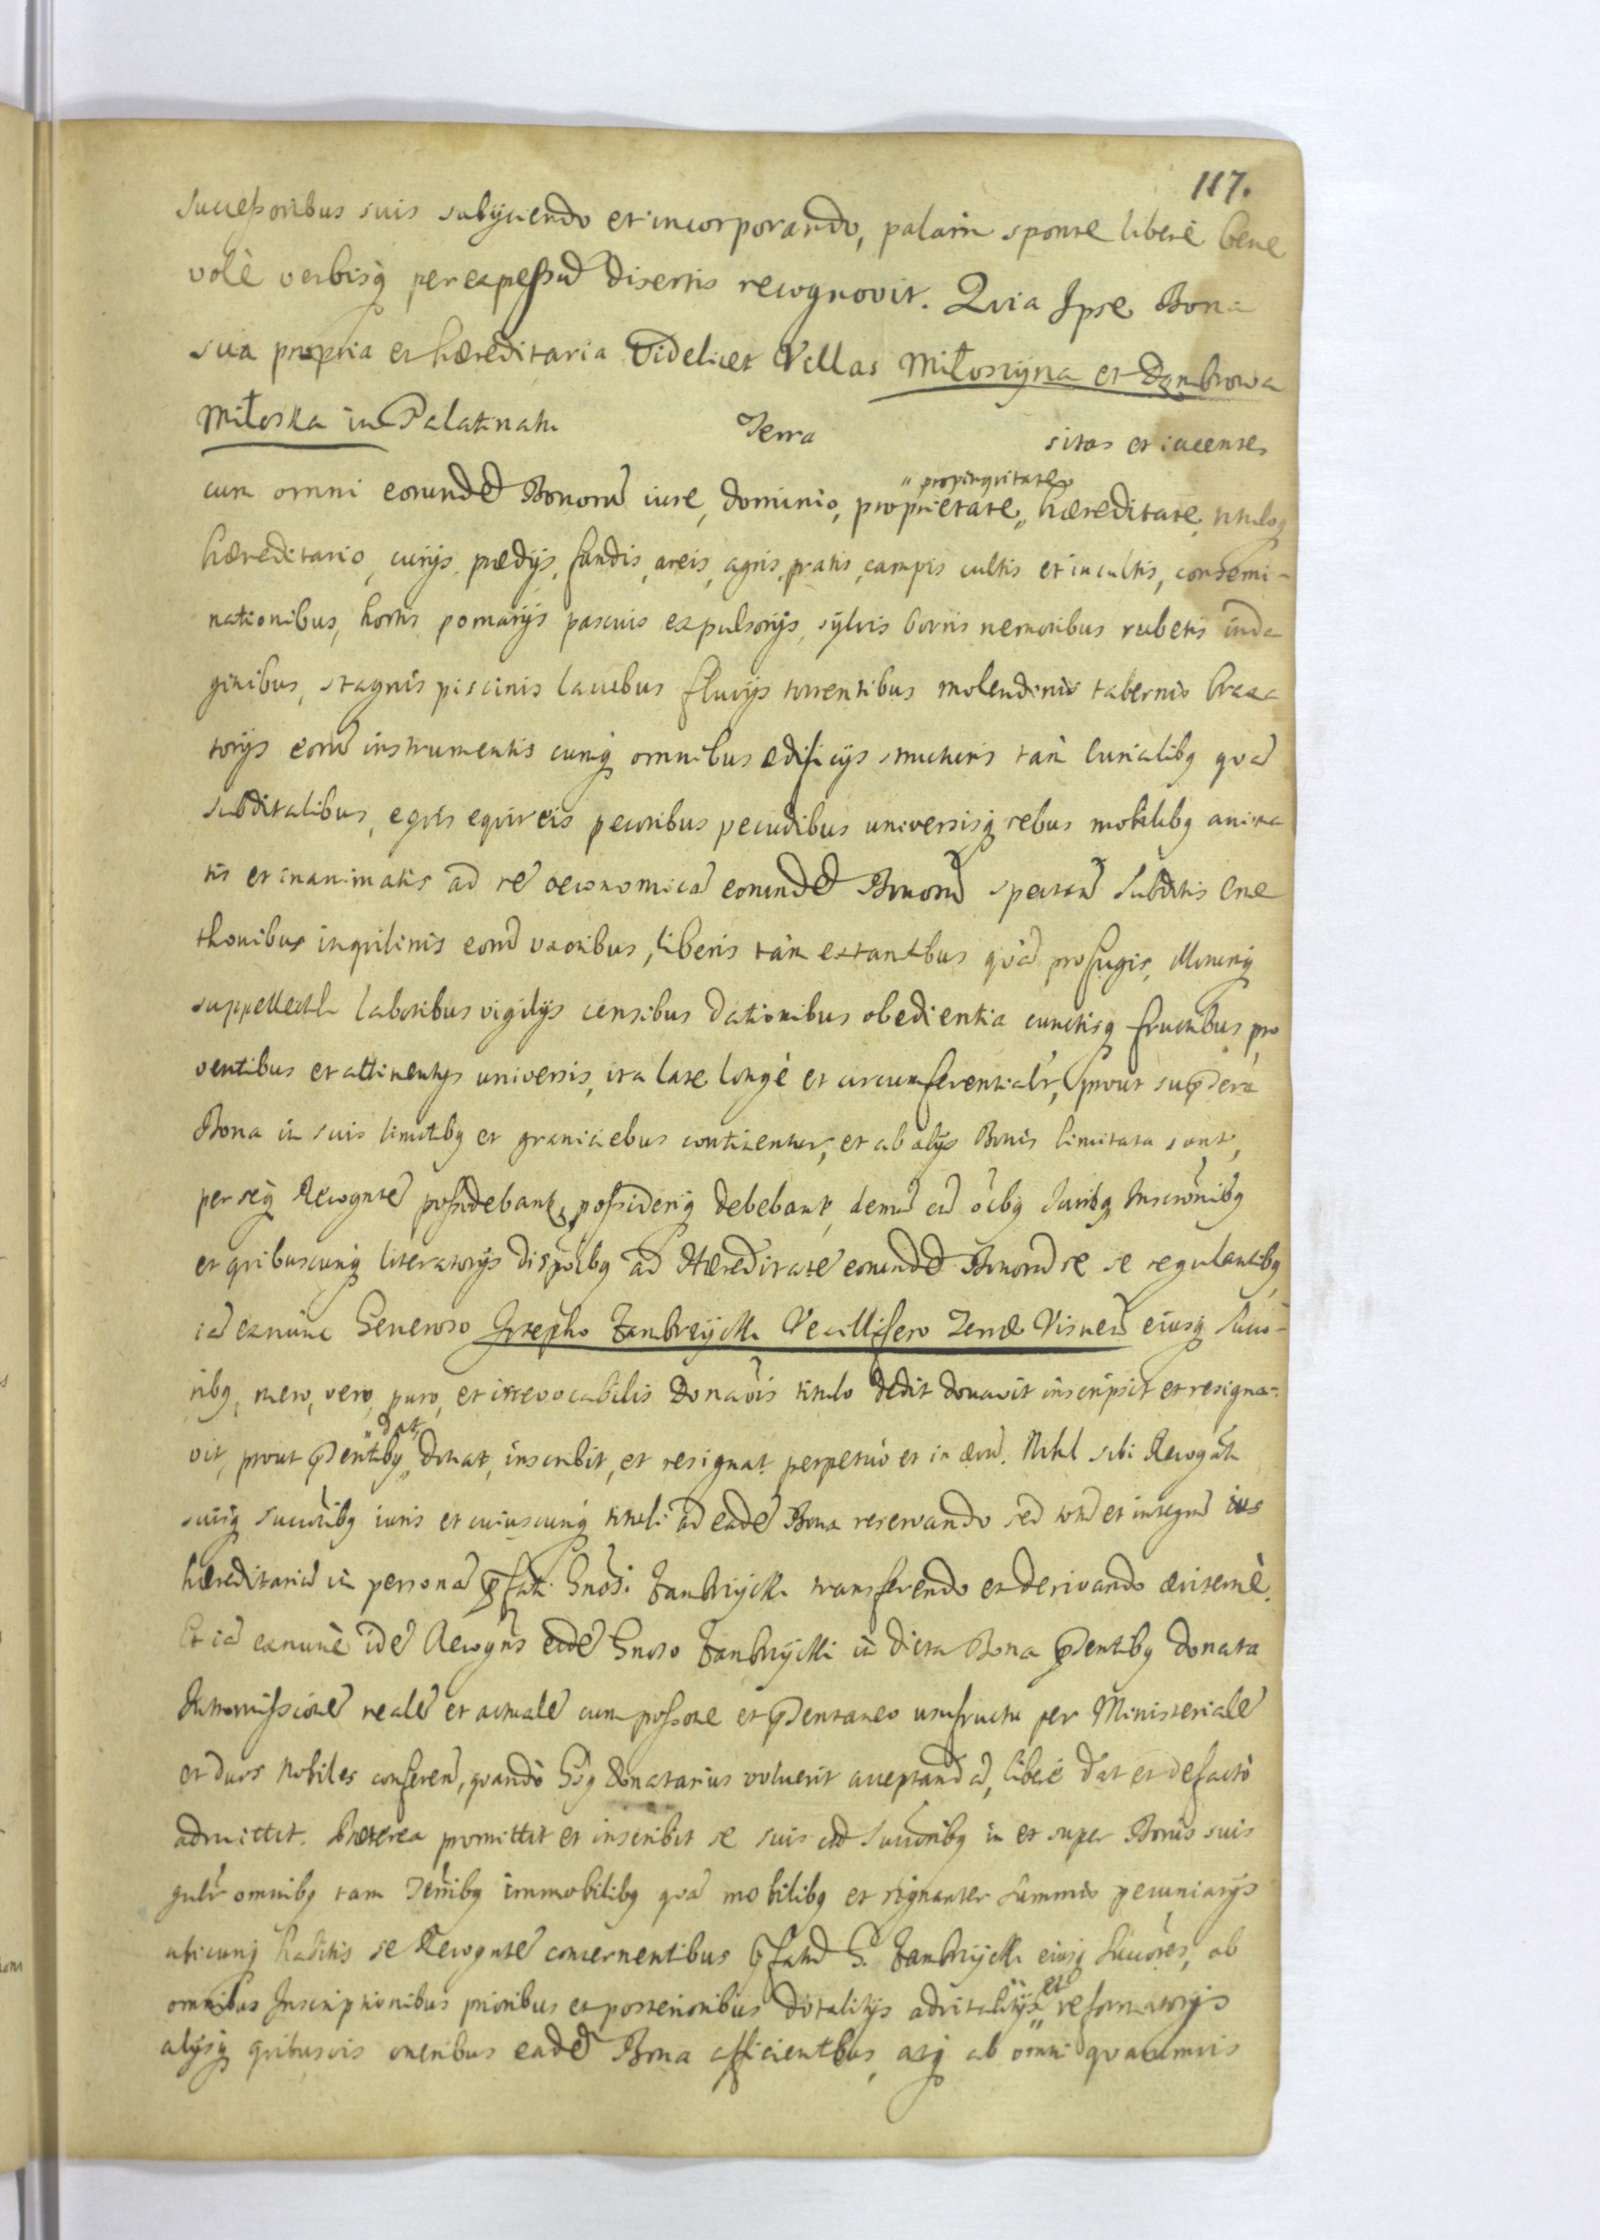 117.
Successoribus suis subÿciendo et incorporando, palam sponte liberè bene
volè verbisq̨ per expressũ disertis recognovit. Qvia Ipse Bona
sua propria et hæreditaria Videlicet Villas Miłoszyna et Dąmbrowa
Miłoska in Palatinatu Terra sitas et iacentes
cum omni eorundẽ Bonorũ iure, dominio, proprietate „ propinqvitate hæreditate, tituloq̨
hæreditario, curÿs, prædÿs, fundis, areis, agris, pratis, campis cultis et incultis, consemi-
nationibus, hortis pomarÿs pascuis expulsorÿs, sÿlvis borris nemoribus rubetis inda
ginibus, stagnis piscinis lacubus fluvÿs torrentibus molendinis tabernis braxa
torÿs eorũ instrumentis cumq̨ omnibus ædificÿs structuris tam curialibq̨ qvã
subditalibus, eqvis eqvireis pecoribus pecudibus universisq̨ rebus mobilibq̨ anima
tis et inanimatis ad rẽ oeconomicã eorundẽ Bonorũ spectan̄ Subditis Cme
thonibus inqvilinis eorũ uxoribus, liberis tam extantibus qvã profugis,
suppellectili laboribus vigilÿs censibus dationibus obedientia cunctisq̨ fructibus pro
ventibus et attinentÿs universis, ita late longè et circumferentialr̃, prout supd̃cta
Bona in suis limitibq̨ et graniciebus continentur, et ab alÿs Bonis limitata sunt,
per seq̨ Recognt̃ẽ possidebant, possideriq̨ debebant, demũ cũ o͂ibq̨ Juribq̨ Inscr̃onibq̨
et qvibuscunq̨ literatorÿs disp̃oibq̨ ad Hæreditatẽ eorundẽ Bonorũ se se regulantibq̨
iã exnunc Generoso Josepho Zambrzÿcki Vexillifero Terræ Visneñ eiusq̨ Succo-
ribq̨, mero, vero, puro, et irrevocabilis donaõis titulo dedit donavit inscripsit et resigna-
vit, prout p̃sentibq̨ „ dat, donat, inscribit, et resignat perpetuò et in ævũ. Nihil sibi Recogñti
suisq̨ succoribq̨ iuris et cuiuscunq̨ tituli ad eadẽ Bona reservando sed totũ et integrũ ius
hæreditariũ in personã p̃fati Gnosi Zambrzÿcki transferendo et derivando æviternè.
Et iã exnunc idẽ Recogñs eidẽ Gnoso Zambrzÿcki in dicta Bona p̃sentibq̨ donata
Intromissionẽ realẽ et actualẽ cum possone et p̃sentaneo usufructu per Ministerialẽ
et duos Nobiles conferen̄, qvando Gsq̨ donatarius voluerit acceptandã, liberè dat et defactò
admittit. Præterea promittit et inscribit se suis cũ Succoribq̨ in et super Bonis suis
gnlr̃ omnibq̨ tam Terribq̨ immobilibq̨ qvã mobilibq̨ et signanter Summis pecuniarÿs
ubicunq̨ habitis se Recogntẽ concernentibus p̃fatũ G. Zambrzÿcki eiusq̨ Succores, ab
omnibus Inscriptionibus prioribus et posterioribus dotalitÿs advitalitÿs „ et reformatorÿs
alÿsq̨ qvibusvis oneribus eadẽ Bona afficientibus, atq̨ ab omni qvacumvis